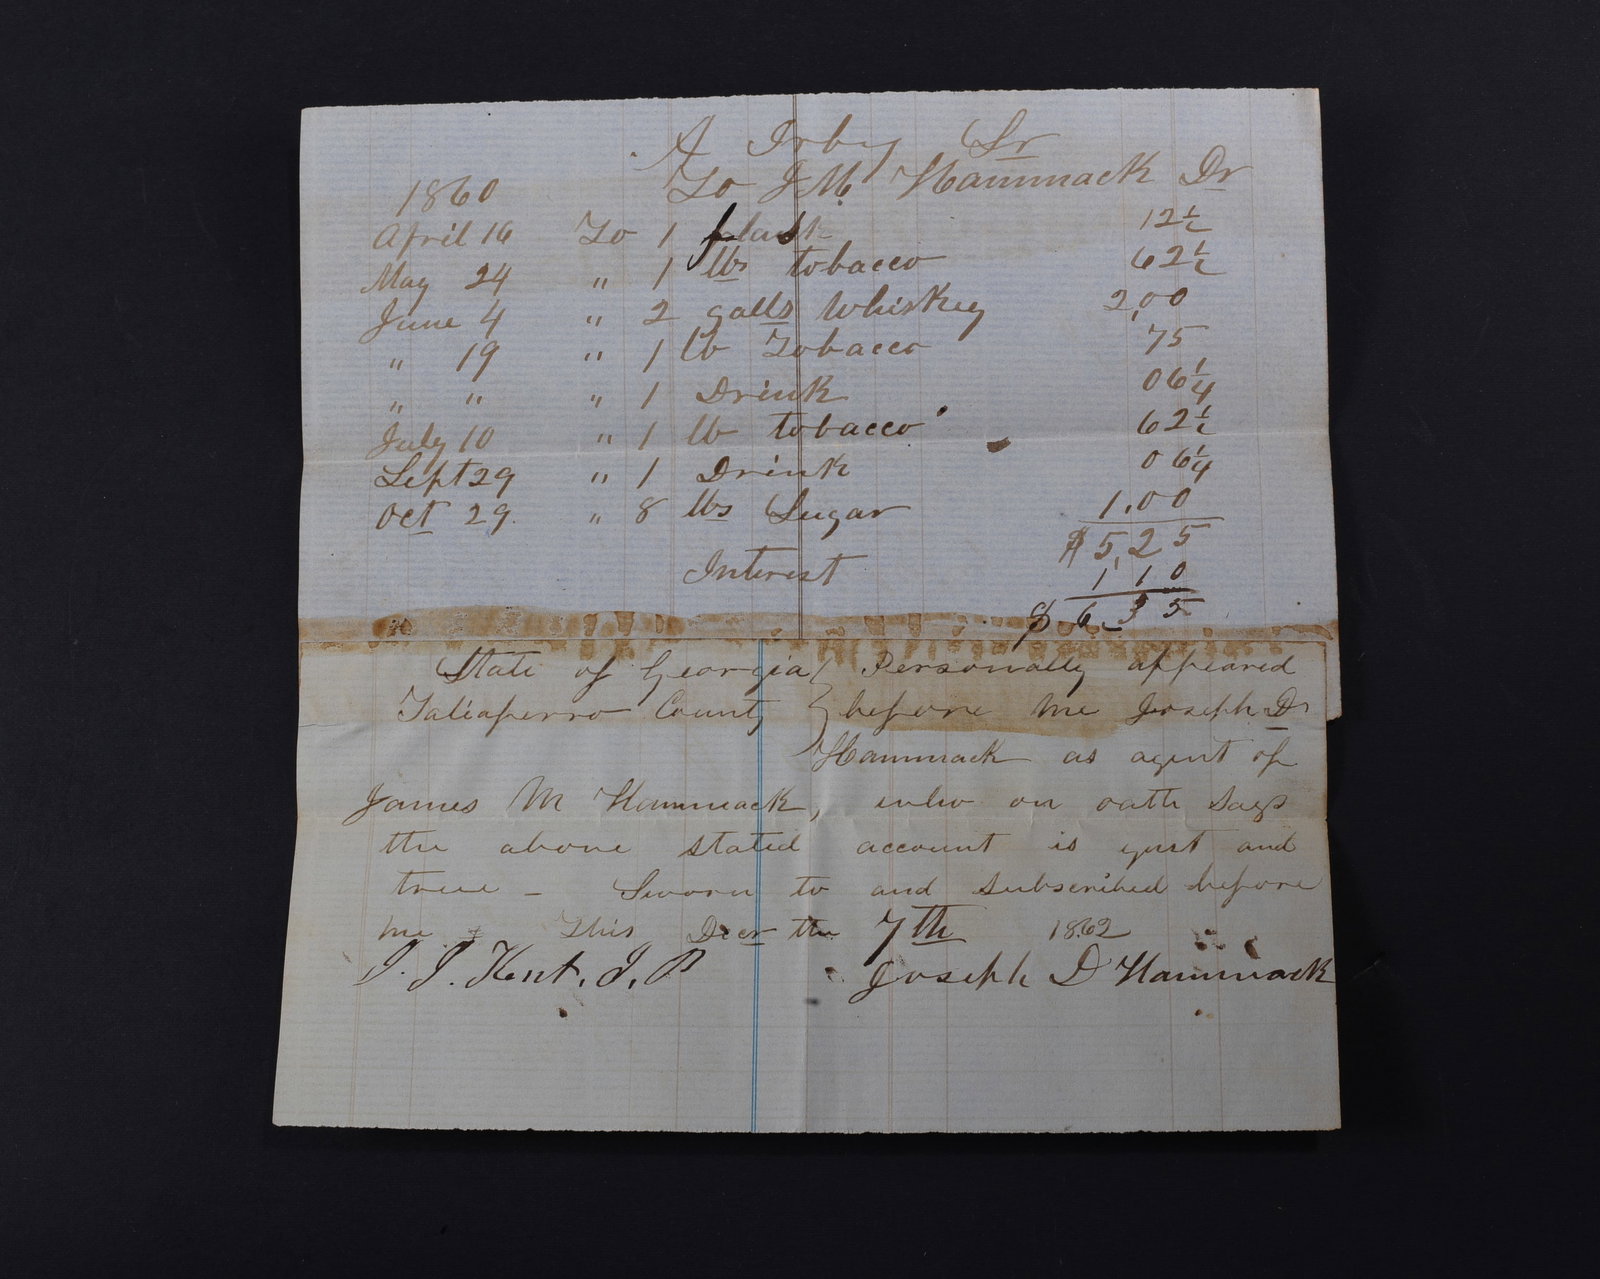 A Irby Sr
1860 To J M. Hammack Dr
April 16 To 1 flask 12½
May 24 " 1 lbs tobacco 62½
June 4 " 2 galls Whiskey 2,00
" 19 " 1 lb Tobacco 75
" " " 1 Drink 06¼
July 10 " 1 lb tobacco 62½
Sept 29 " 1 Drink 06¼
Oct 29. " 8 lbs Sugar 1.00
$5,25
Interest 1 10
$ 6,35
State of Georgia } Personally appeared
Taliaferro County } before me Joseph D
Hammack as agent of
James M Hammack, who on oath says
the above stated account is just and
true - Sworn to and subscribed before
me This Decr the 7th 1862
J. J. Kent. J. P Joseph D Hammack